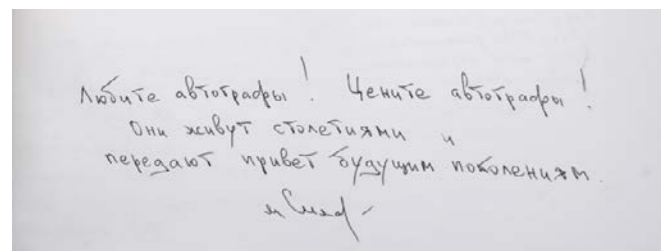 Любите автографы! Цените автографы!
Они живут столетиями и
передают привет будущим поколениям.